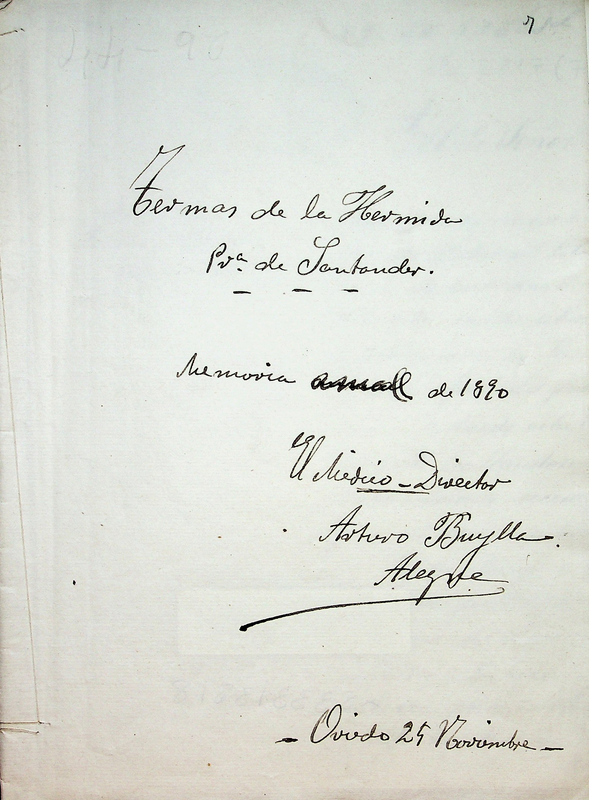 7
Termas de la Hermida
Prvª. de Santander.
Memoria anual de 1890
El Médico-Director
Arturo Buylla.
Alegre
- Oviedo 25 Noviembre -